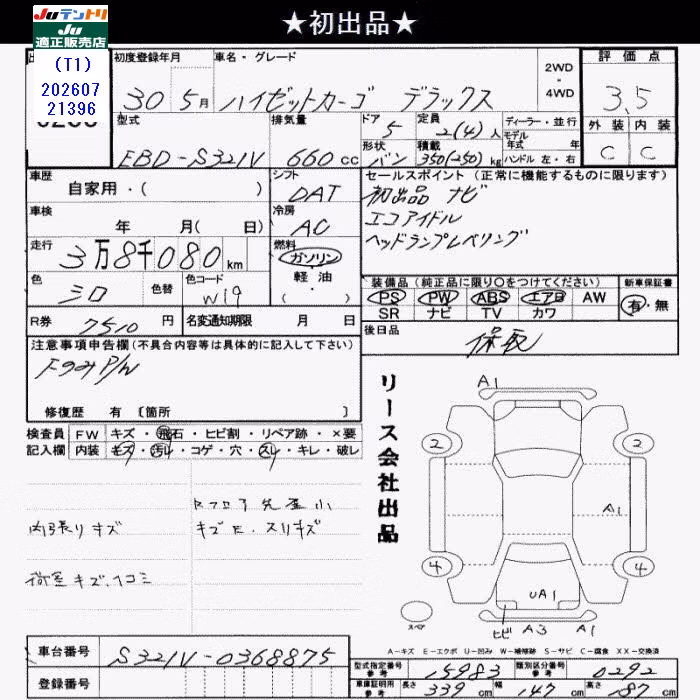 ★初出品★
Juテントリ
Ju
適正販売店
(T1)
202607
21396
初度登録年月
車名・グレード
2WD
・
4WD
評価点
30 5月
ハイゼットカーゴ デラックス
3.5
型式
排気量
ドア
定員
ディーラー・並行
外装 内装
5
2(4)人
モデル
年式 年
EBD-S321V
660cc
形状
バン
積載
350(250)kg
ハンドル 左・右
C C
車歴
自家用・( )
シフト
DAT
セールスポイント(正常に機能するものに限ります)
初出品 ナビ
エコアイドル
ヘッドランプレベリング
車検
年 月( 日)
冷房
AC
走行
3万8千080km
燃料
ガソリン
・
軽・油
( )
色
シロ
色替
色コード
W19
装備品(純正品に限り○をつけてください)
新車保証書
PS PW ABS エアB AW
有・無
SR ナビ TV カワ
R券
7510円
名変通知期限 月 日
後日品
保取
注意事項申告欄(不具合内容等は具体的に記入して下さい)
FのみP/W
修復歴 有 〔箇所 〕
リース会社出品
検査員
記入欄
FW キズ・飛石・ヒビ割・リペア跡・×要
内装 キズ・汚れ・コゲ・穴・スレ・キレ・破レ
内張りキズ
荷室キズ、ヘコミ
キズE.スリキズ
A1
2
2
A1
4
4
UA1
ヒビ
A3
A1
スペア
A-キズ E-エクボ U-凹み W-補修跡 S-サビ C-腐食 XX-交換済
車台番号
S321V-0368875
登録番号
型式指定番号
参考
15983
類別区分番号
参考
0292
車庫証明用
参考
長さ
339cm
幅
147cm
高さ
187cm